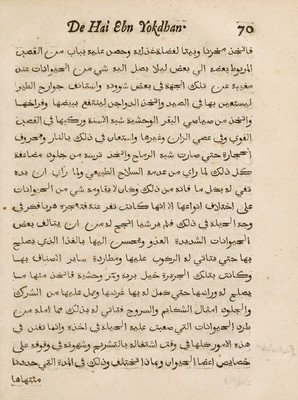 De Hai Ebn Yokdhan. 70
فاتخذ مخزنا وبيتا لفضلة غذائه وحصن عليه بباب من القصب
المربوط بعضه الي بعض ليلا يصل اليه شي من الحيوانات عند
مغيبه عن تلك الجهة في بعض شوونه واستالف جوارح الطير
ليستعين بها في الصيد واتخذ الدواجن لينتفع ببيضها وفراخها
واتخذ من صياصي البقر الوحشية شبه الاسنة وركبها في القصب
القوي وفي عصي الزان وغيرها واستعان في ذلك بالنار وبحروف
الحجارة حتي صارت شبه الرماح واتخذ ترسه من جلود مضاعفة
كل ذلك لما راي من عدمه السلاح الطبيعي ولما راي ان يده
تفي له بكل ما فاته من ذلك وكان لا يقاومه شي من الحيوانات
علي اختلاف انواعها الا انها كانت تفر عنه فتعجزه هربا ففكر في
وجه الحيلة في ذلك فلم ير شيا انجح له من ان يتالف بعض
الحيوانات الشديدة العدو ويحسن اليها بالغذا الذي يصلح
بها حتي يتاتي له الركوب عليها ومطاردة ساير الاصناف بها
وكانت بتلك الجزيرة خيل برية وحمر وحشية فاتخذ منها ما
يصلح له وراضها حتي كمل له بها غرضه وعمل عليها من الشرك
والجلود امثال الشكايم والسروج فتاتي له بذلك ما امله من
طرد الحيوانات التي صعبت عليه الحيلة في اخذه وانما تفنن في
هذه الامور كلها في وقت اشتغاله بالتشريح وشهوته في وقوفه علي
خصايص اعضا الحيوان وبماذا تختلف وذلك في المدة التي حددنا
منتهاها